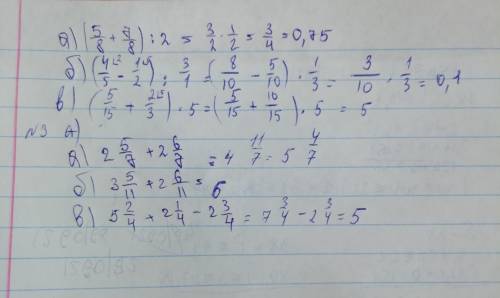 а) (5/8 + 7/8) : 2 = 3/2 · 1/2 = 3/4 = 0,75
б) (4/5 - 1/2) : 3/1 = (8/10 - 5/10) · 1/3 = 3/10 · 1/3 = 0,1
в) (5/15 + 2/3) · 5 = (5/15 + 10/15) · 5 = 5
№3 а)
а) 2 5/7 + 2 6/7 = 4 11/7 = 5 4/7
б) 3 5/11 + 2 6/11 = 6
в) 5 2/4 + 2 1/4 - 2 3/4 = 7 3/4 - 2 3/4 = 5